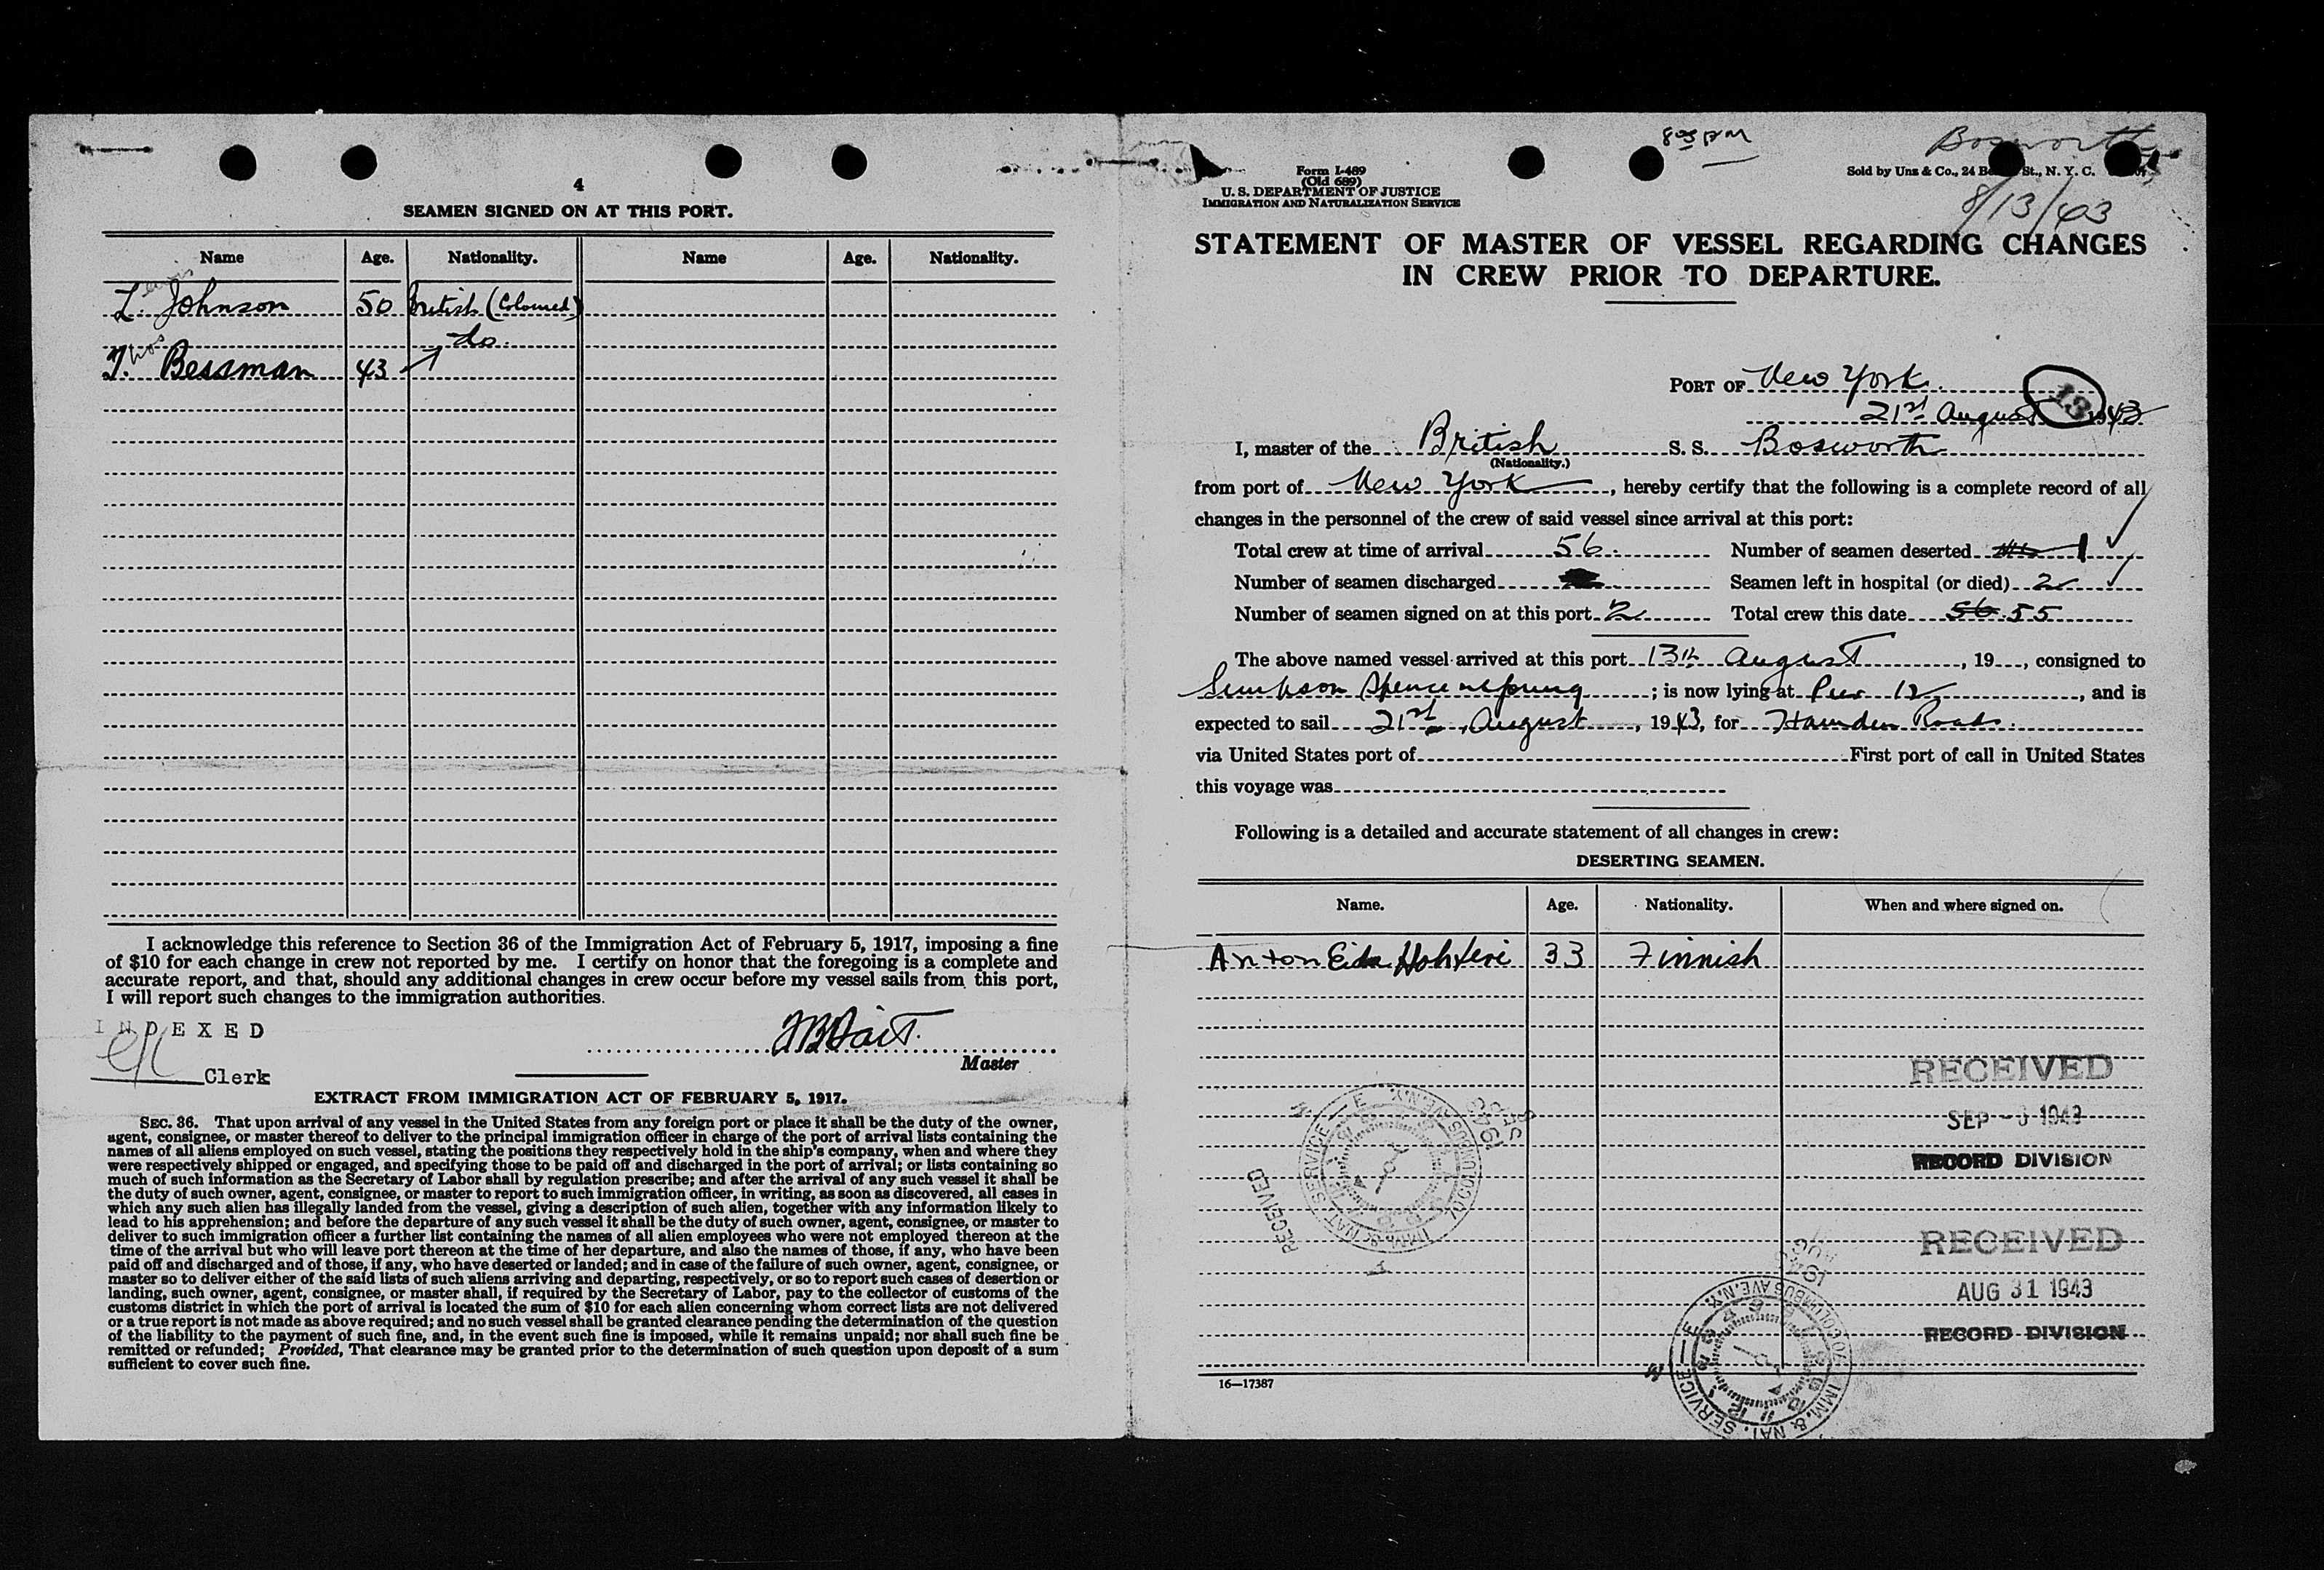 4
SEAMEN SIGNED ON AT THIS PORT.
Name Age. Nationality. Name Age. Nationality.
L. Johnson 50 British (Coloured)
do.
T. Bessman 43
I acknowledge this reference to Section 36 of the Immigration Act of February 5, 1917, imposing a fine
of $10 for each change in crew not reported by me. I certify on honor that the foregoing is a complete and
accurate report, and that, should any additional changes in crew occur before my vessel sails from this port,
I will report such changes to the immigration authorities.
INDEXED
Clerk
Master
EXTRACT FROM IMMIGRATION ACT OF FEBRUARY 5, 1917.
SEC. 36. That upon arrival of any vessel in the United States from any foreign port or place it shall be the duty of the owner,
agent, consignee, or master thereof to deliver to the principal immigration officer in charge of the port of arrival lists containing the
names of all aliens employed on such vessel, stating the positions they respectively hold in the ship's company, when and where they
were respectively shipped or engaged, and specifying those to be paid off and discharged in the port of arrival; or lists containing so
much of such information as the Secretary of Labor shall by regulation prescribe; and after the arrival of any such vessel it shall be
the duty of such owner, agent, consignee, or master to report to such immigration officer, in writing, as soon as discovered, all cases in
which any such alien has illegally landed from the vessel, giving a description of such alien, together with any information likely to
lead to his apprehension; and before the departure of any such vessel it shall be the duty of such owner, agent, consignee, or master to
deliver to such immigration officer a further list containing the names of all alien employees who were not employed thereon at the
time of the arrival but who will leave port thereon at the time of her departure, and also the names of those, if any, who have been
paid off and discharged and of those, if any, who have deserted or landed; and in case of the failure of such owner, agent, consignee, or
master so to deliver either of the said lists of such aliens arriving and departing, respectively, or so to report such cases of desertion or
landing, such owner, agent, consignee, or master shall, if required by the Secretary of Labor, pay to the collector of customs of the
customs district in which the port of arrival is located the sum of $10 for each alien concerning whom correct lists are not delivered
or a true report is not made as above required; and no such vessel shall be granted clearance pending the determination of the question
of the liability to the payment of such fine, and, in the event such fine is imposed, while it remains unpaid; nor shall such fine be
remitted or refunded; Provided, That clearance may be granted prior to the determination of such question upon deposit of a sum
sufficient to cover such fine.
8 05 PM
Bosworth
Form I-489
(Old 689)
U. S. DEPARTMENT OF JUSTICE
IMMIGRATION AND NATURALIZATION SERVICE
Sold by Unz & Co., 24 St., N. Y. C.
8/13/43
STATEMENT OF MASTER OF VESSEL REGARDING CHANGES
IN CREW PRIOR TO DEPARTURE.
PORT OF New York
21st August 1943
13
I, master of the British S. S. Bosworth
(Nationality.)
from port of New York, hereby certify that the following is a complete record of all
changes in the personnel of the crew of said vessel since arrival at this port:
Total crew at time of arrival 56. Number of seamen deserted 1
Number of seamen discharged Seamen left in hospital (or died) 2
Number of seamen signed on at this port 2 Total crew this date 56 55
The above named vessel arrived at this port 13th August, 19, consigned to
Simpson Spence & Young; is now lying at Pier 12, and is
expected to sail 21st August, 1943, for Hamden Roads.
via United States port of First port of call in United States
this voyage was
Following is a detailed and accurate statement of all changes in crew:
DESERTING SEAMEN.
Name. Age. Nationality. When and where signed on.
Anton 33 Finnish
RECEIVED
SEP 1943
RECORD DIVISION
RECEIVED
IMM. & NAT. SERVICE 70 COLUMBUS AVE. N.Y.
SEP 1943
RECEIVED
AUG 31 1943
RECORD DIVISION
IMM. & NAT. SERVICE 70 COLUMBUS AVE. N.Y.
AUG 1943
16—17387